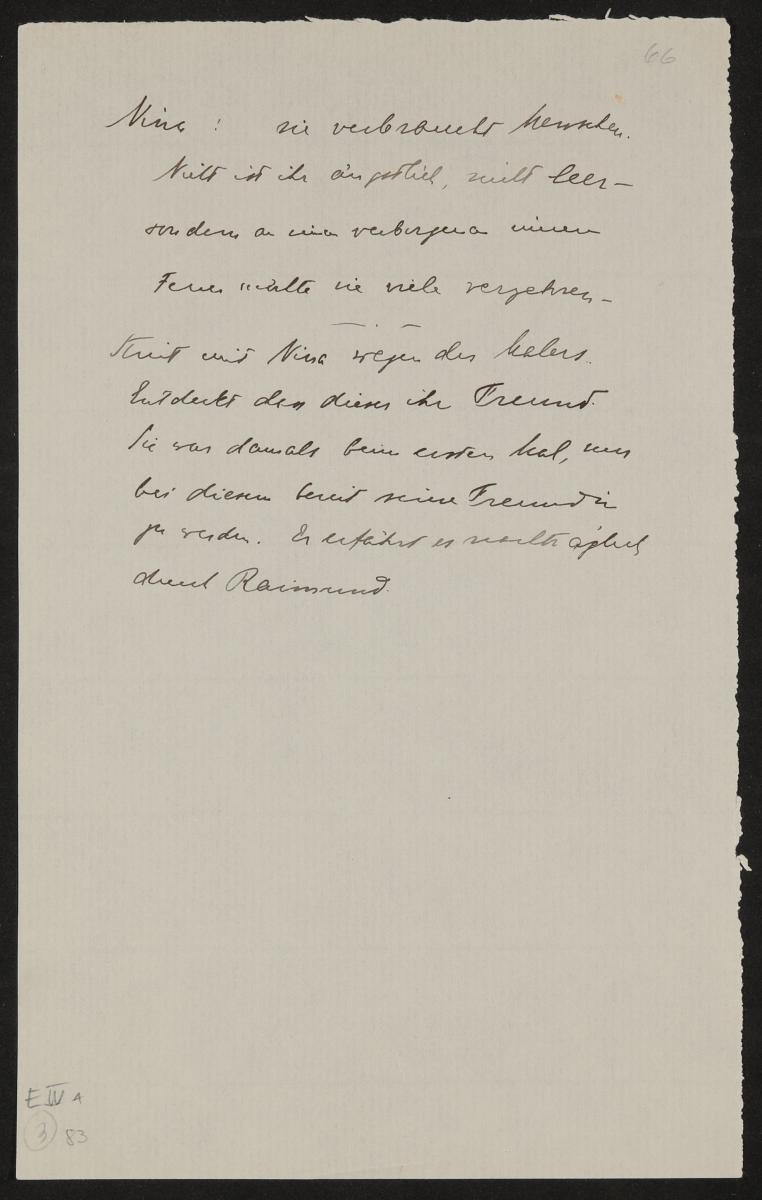 66
Nina : sie verbraucht Menschen.
Nicht ist ihr ängstlich, nicht leer –
sondern an einem verborgenen innern
Feuer möchte sie viele verzehren –
Streit mit Nina wegen des Malers.
Entdeckt dass dieser ihr Freund.
Sie war damals beim ersten Mal, nun
bei diesem bereit seine Freundin
zu werden. Er erfährt es nachträglich
durch Raimund.
E IV A
3 83